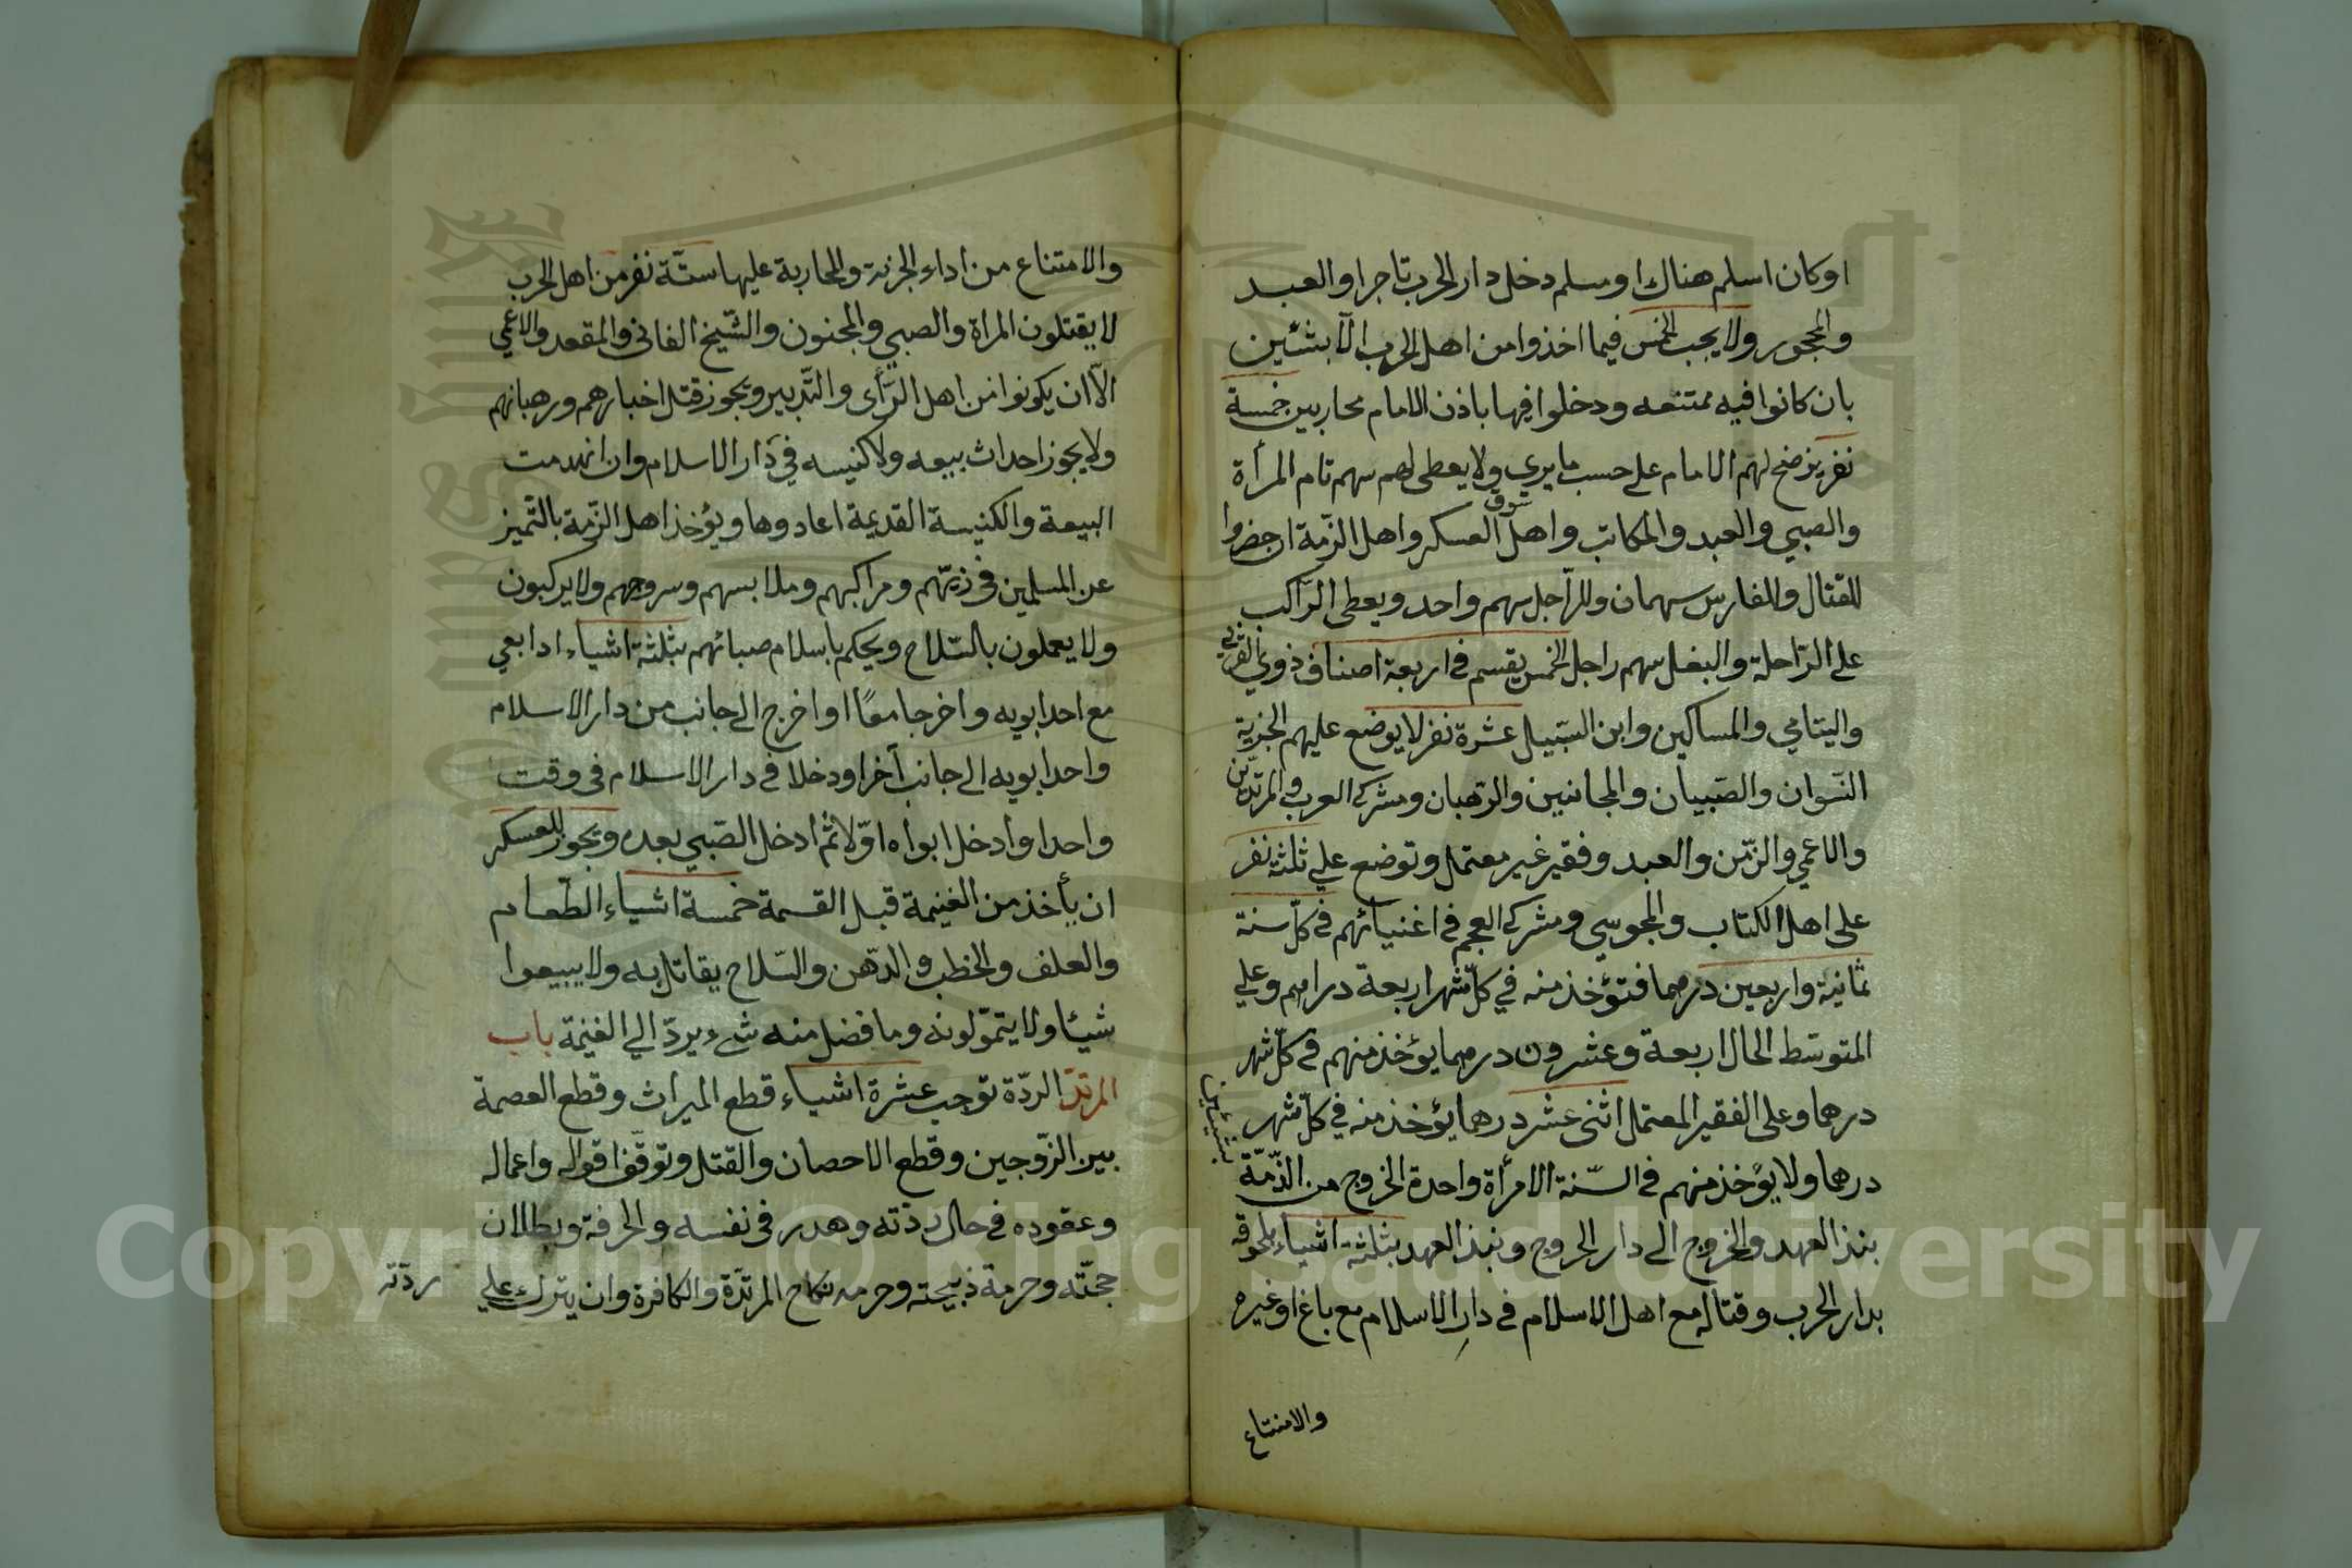 اوكان اسلم هناك اومسلم دخل دار الحرب تاجرا والعبد
والمحجور ولا يجب الخمس فيما اخذوا من اهل الحرب الا بشئين
بان كانوا فيه ممتنعه ودخلوا فيها باذن الامام محاربين خمسة
نفر يرضخ لهم الامام على حسب ما يرى ولا يعطى لهم سهم تام المرأة
والصبي والعبد والمكاتب واهل سوق العسكر واهل الذمة ان حضروا
للقتال وللفارس سهمان وللراجل سهم واحد ويعطى الراكب
على الراحلة والبغل سهم راجل الخمس يقسم في اربعة اصناف ذوي القربى
واليتامي والمساكين وابن السبيل عشرة نفر لا يوضع عليهم الجزية
النسوان والصبيان والمجانين والرهبان ومشركي العرب والمرتدين
والاعمي والزمن والعبد وفقير غير معتمل وتوضع علي ثلثة نفر
على اهل الكتاب والمجوسي ومشركي العجم في اغنيائهم في كل سنة
ثمانية واربعين درهما فتؤخذ منه في كل شهر اربعة دراهم وعلي
المتوسط الحال اربعة وعشرون درهما يؤخذ منهم في كل شهر
درهما وعلى الفقير المعتمل اثنى عشر درهما يؤخذ منه في كل شهر
درهما ولا يؤخذ منهم في السنة الا مرأة واحدة الخروج من الذمة
بشيئين
بنبذ العهد والخروج الى دار الحروج ونبذ العهد بثلثة اشياء بلحوقه
بدار الحرب وقتاله مع اهل الاسلام في دار الاسلام مع باغ اوغيره
والامتناع
والامتناع من اداء الجزية والمحاربة عليها ستة نفر من اهل الحرب
لا يقتلون المراة والصبي والمجنون والشيخ الفاني والمقعد والاعمي
الا ان يكونوا من اهل الرأى والتدبير ويجوز قتل احبارهم ورهبانهم
ولا يجوز احداث بيعه ولا كنيسه في دار الاسلام وان انهدمت
البيعة والكنيسة القديمة اعادوها ويؤخذ اهل الذمة بالتميز
عن المسلمين في زيهم ومراكبهم وملابسهم وسروجهم ولا يركبون
ولا يعملون بالسلاح ويحكم باسلام صبائهم بثلثة اشياء اذا بعي
مع احد ابويه واخرجا معًا او اخرج الى جانب من دار الاسلام
واحد ابويه الى جانب آخر او دخلا في دار الاسلام في وقت
واحد او ادخل ابواه اولا ثم ادخل الصبي بعده ويجوز للعسكر
ان يأخذ من الغنيمة قبل القسمة خمسة اشياء الطعام
والعلف والحطب والدهن والسلاح يقاتل به ولا يبيعوا
شيئا ولا يتمولونه وما فضل منه شيء يرد الي الغنيمة باب
المرتد الردة توجب عشرة اشياء قطع الميراث وقطع العصمة
بين الزوجين وقطع الاحصان والقتل وتوقف اقواله واعماله
وعقوده في حال ردته وهدر في نفسه والحرفة وبطلان
حجته وحرمة ذبيحته وحرمه نكاح المرتدة والكافرة وان يترك على
ردته
Copyright © King Saud University